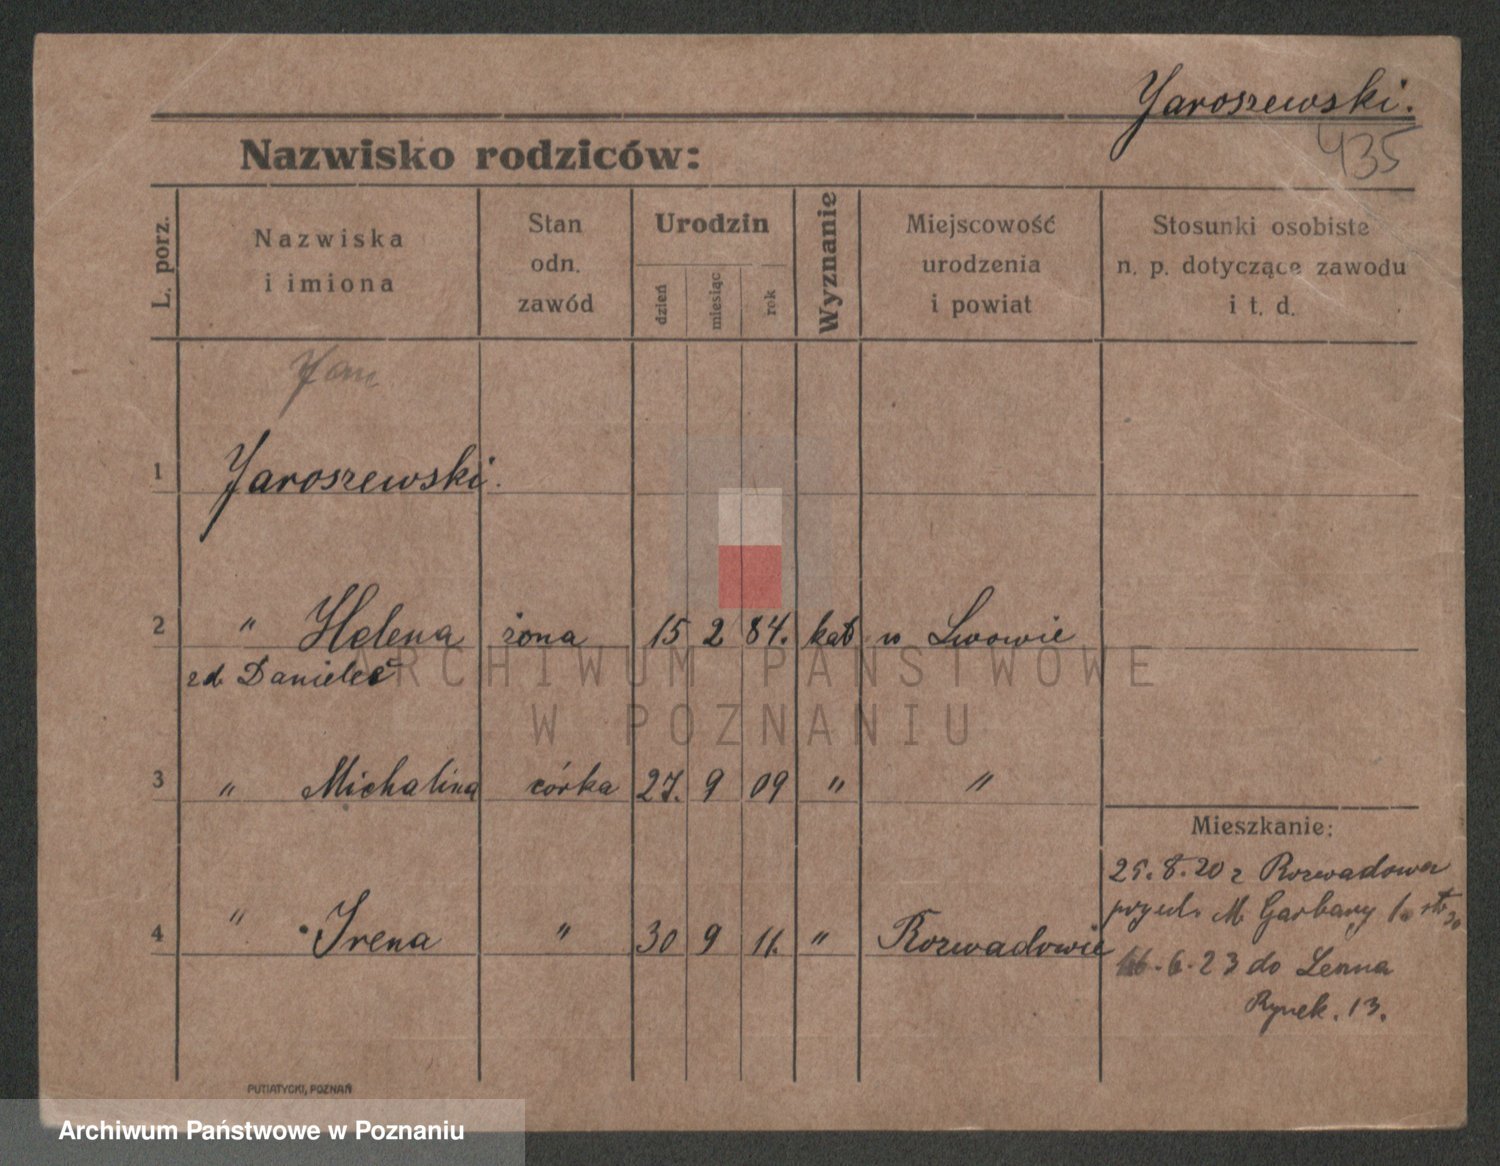 Jaroszewski.
435
Nazwisko rodziców:
L. porz.
Nazwiska
i imiona
Stan
odn.
zawód
Urodzin
dzień
miesiąc
rok
Wyznanie
Miejscowość
urodzenia
i powiat
Stosunki osobiste
n. p. dotyczące zawodu
i t. d.
Jan
1 Jaroszewski.
2 " Helena żona 15 2 84. kat w Lwowie
zd. Danielec
3 " Michalina córka 27. 9 09 " "
Mieszkanie:
25.8.20 z Rozwadowa
M. Garbary
4 " Irena " 30 9 11. " Rozwadowie
6.23 do
Rynek. 13.
PUTIATYCKI, POZNAŃ
ARCHIWUM PAŃSTWOWE
W POZNANIU
Archiwum Państwowe w Poznaniu